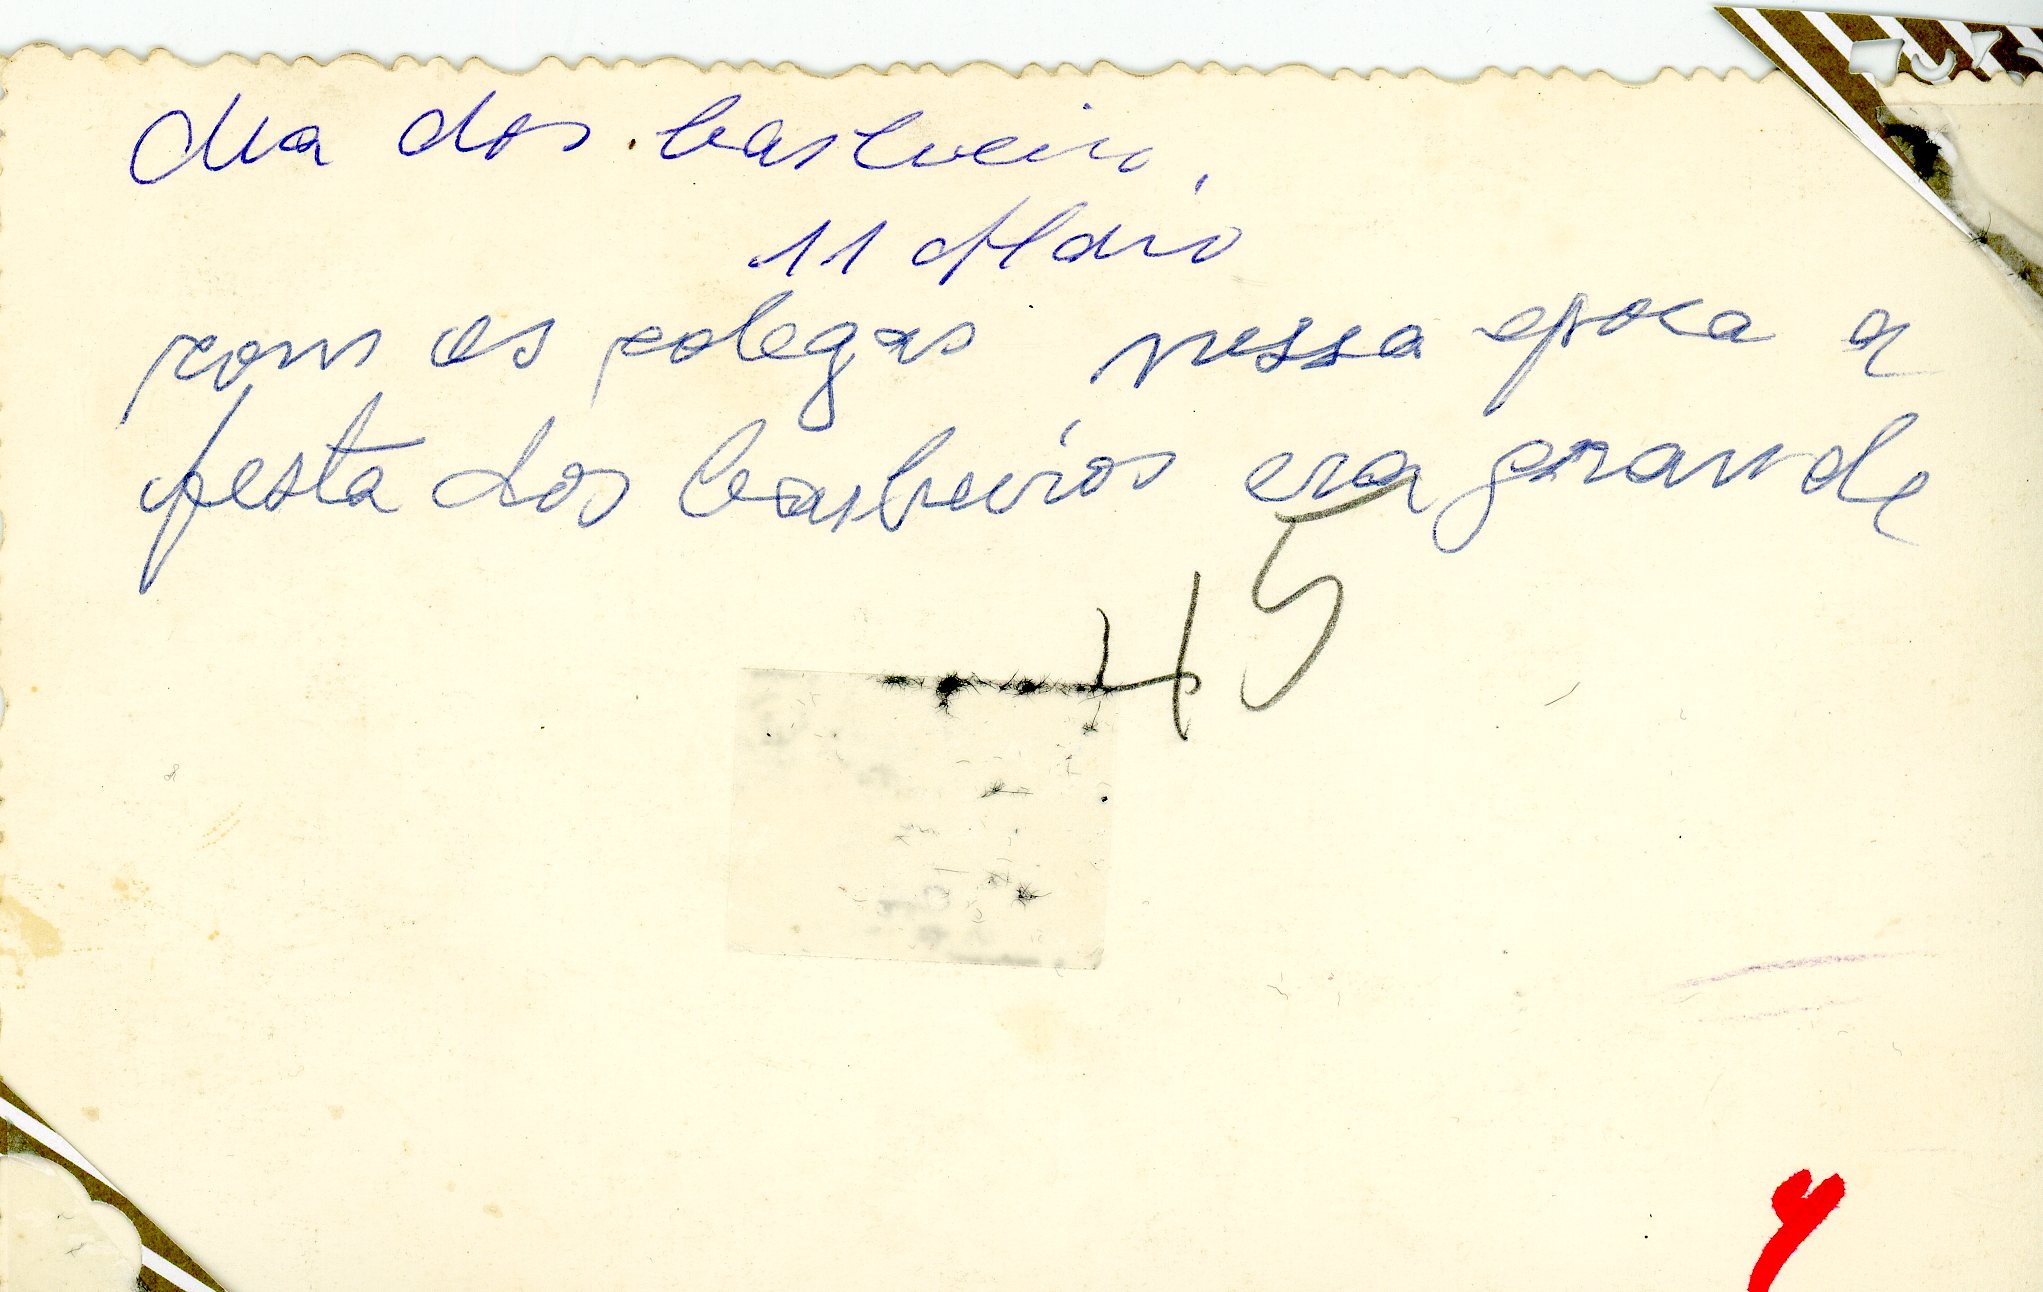 dia dos barbeiro,
11 Maio
com os colegas nessa epoca a
festa dos barbeiros era grande
45